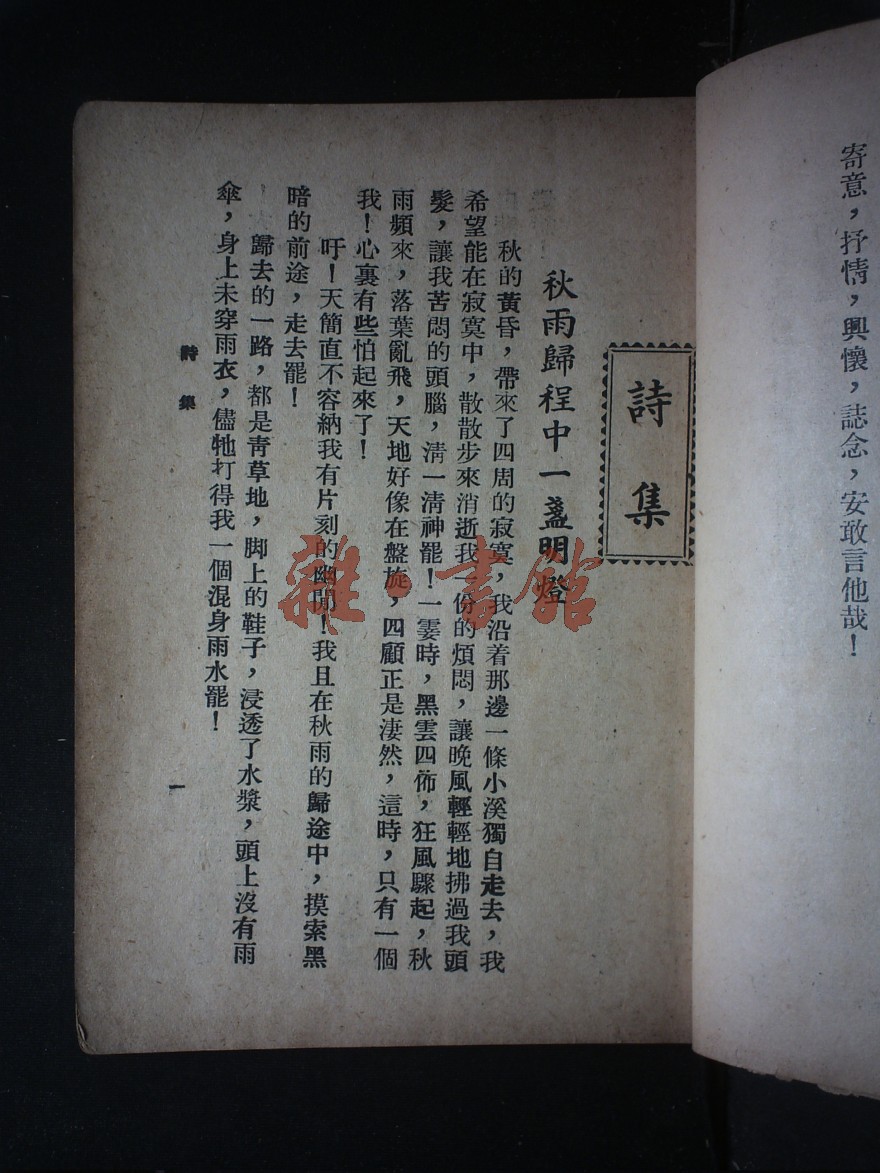 寄意，抒情，興懷，誌念，安敢言他哉！
詩集
秋雨歸程中一盞明燈
秋的黃昏，帶來了四周的寂寞，我沿着那邊一條小溪獨自走去，我
希望能在寂寞中，散散步來消逝我一份的煩悶，讓晚風輕輕地拂過我頭
髮，讓我苦悶的頭腦，清一清神罷！一霎時，黑雲四佈，狂風驟起，秋
雨頻來，落葉亂飛，天地好像在盤旋，四顧正是淒然，這時，只有一個
我！心裏有些怕起來了！
吁！天簡直不容納我有片刻的幽閒！我且在秋雨的歸途中，摸索黑
暗的前途，走去罷！
歸去的一路，都是青草地，脚上的鞋子，浸透了水漿，頭上沒有雨
傘，身上未穿雨衣，儘牠打得我一個混身雨水罷！
詩集
一
雜·書館